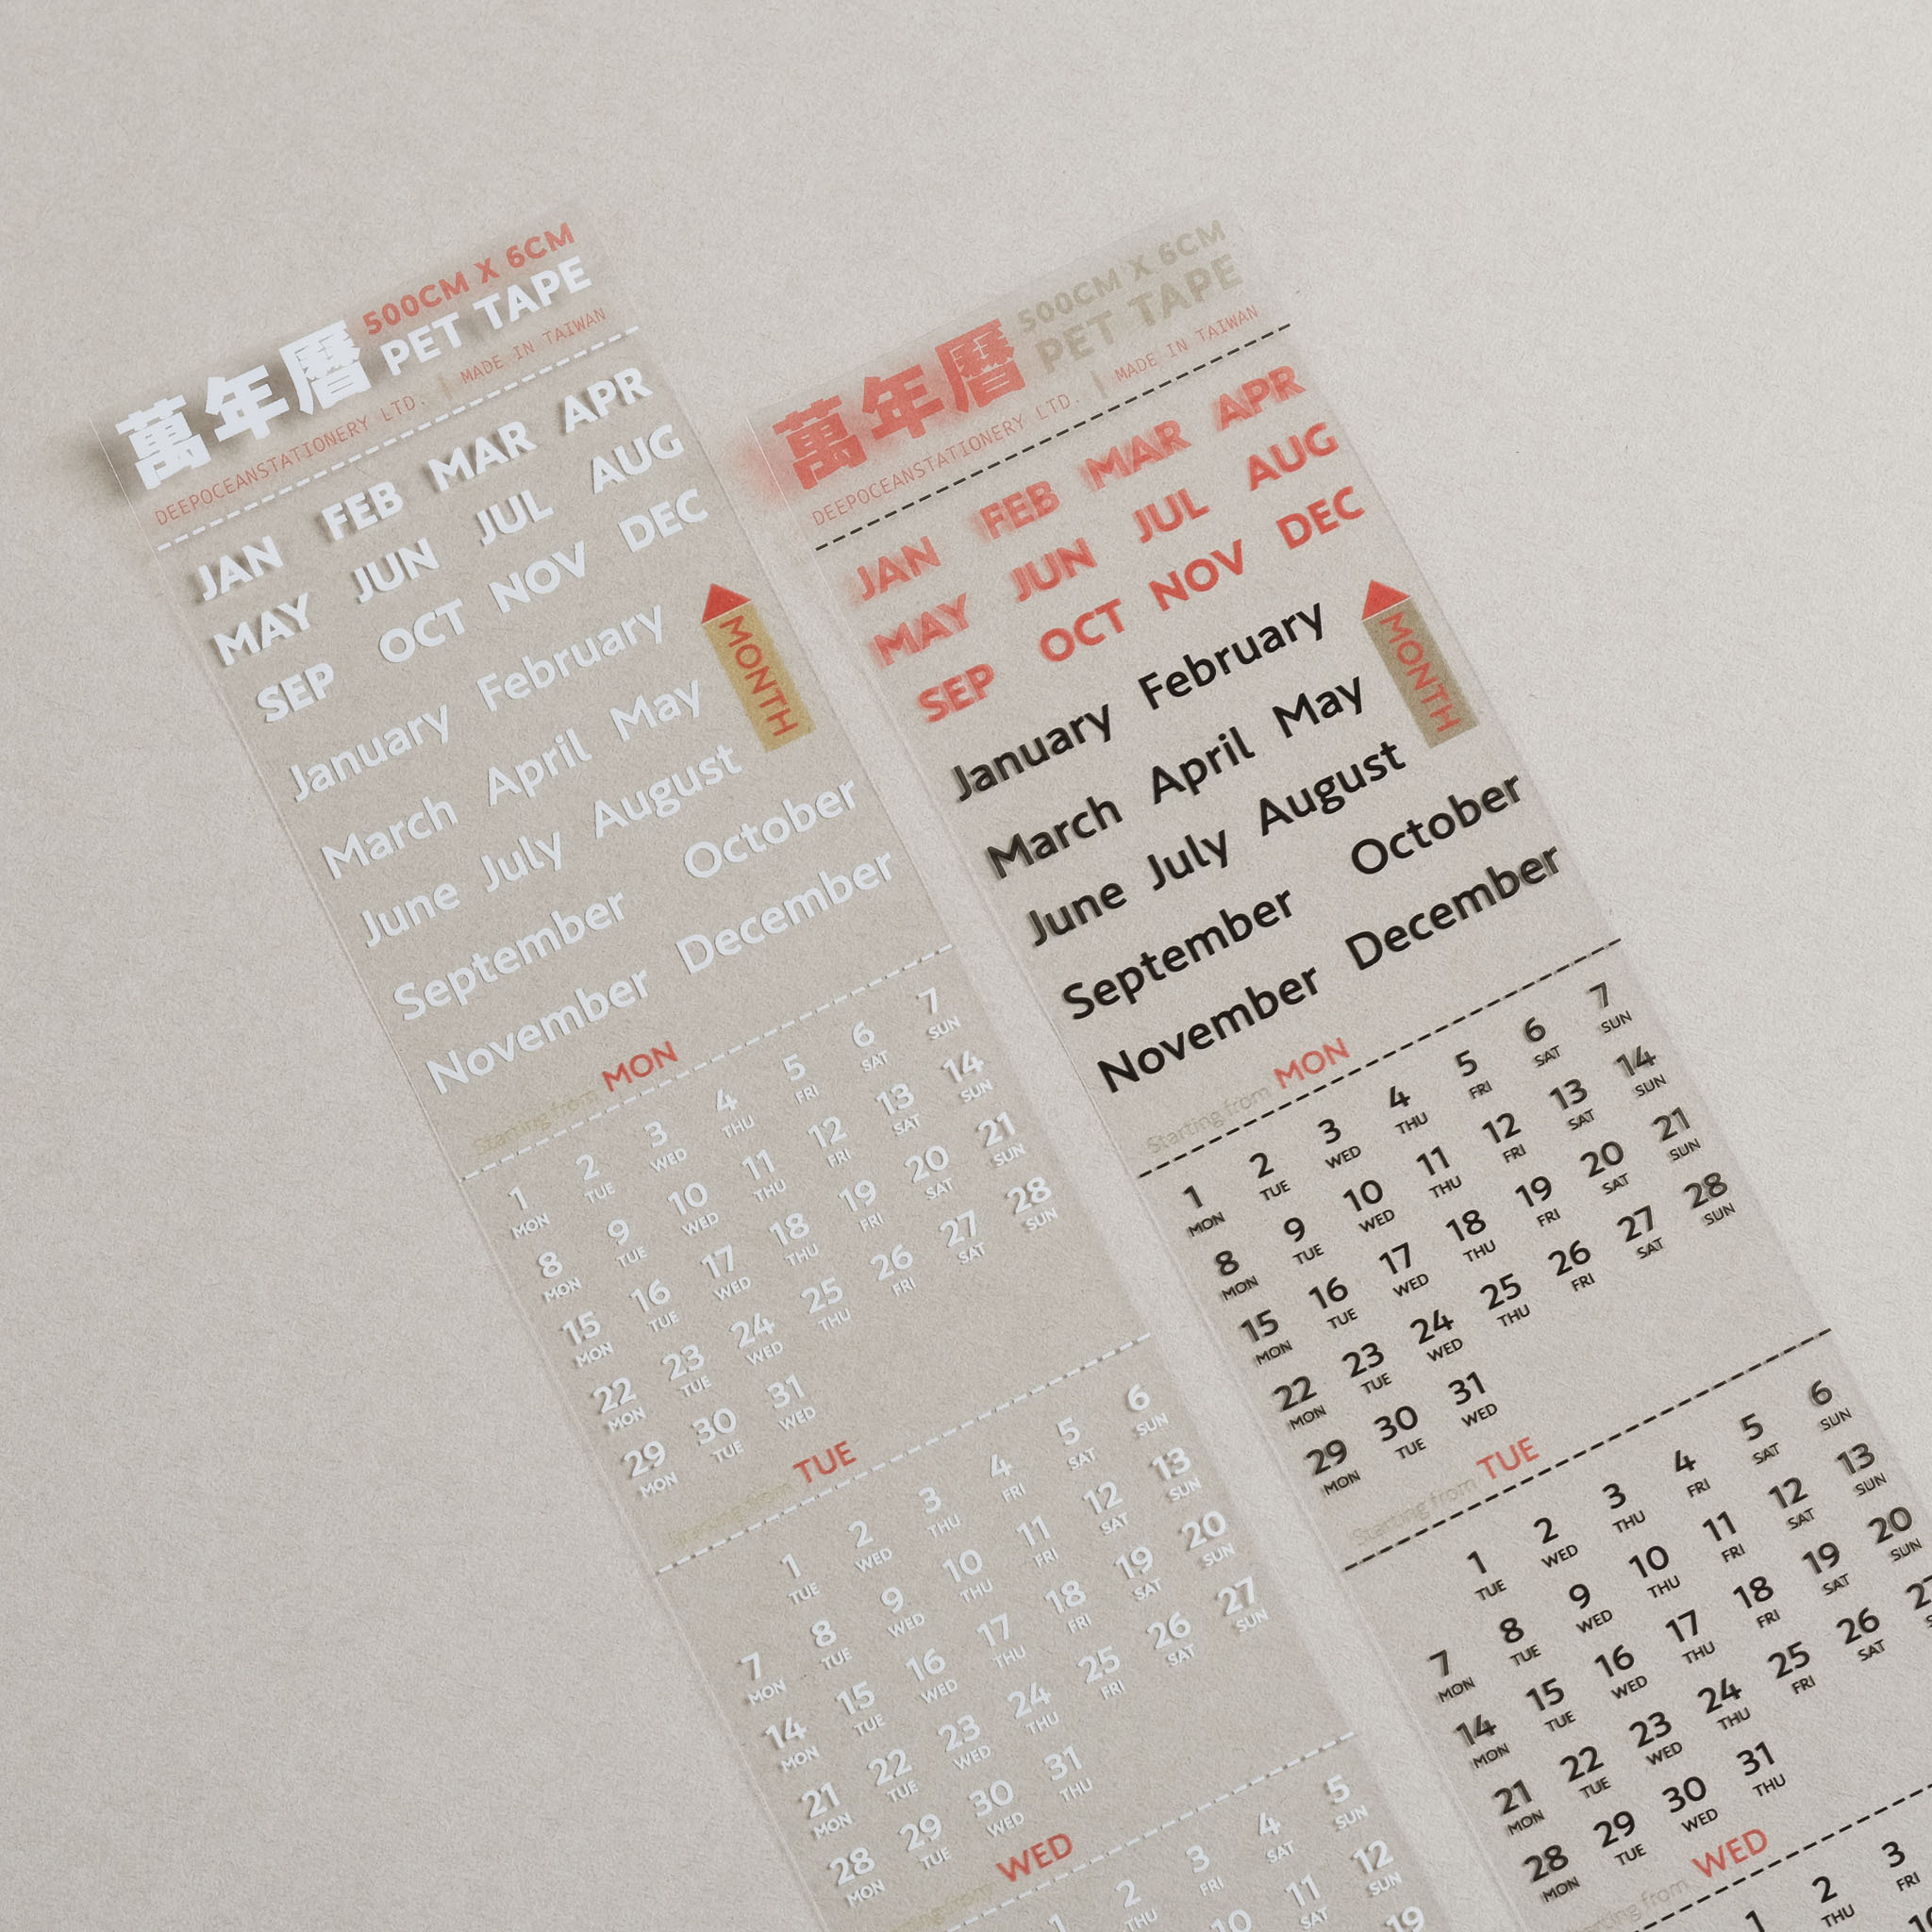 500CM X 6CM
萬年曆 PET TAPE
DEEPOCEANSTATIONERY LTD. | MADE IN TAIWAN
JAN FEB MAR APR
MAY JUN JUL AUG
SEP OCT NOV DEC
January February
March April May
June July August
September October
November December
MONTH
Starting from MON
1 2 3 4 5 6 7
MON TUE WED THU FRI SAT SUN
8 9 10 11 12 13 14
MON TUE WED THU FRI SAT SUN
15 16 17 18 19 20 21
MON TUE WED THU FRI SAT SUN
22 23 24 25 26 27 28
MON TUE WED THU FRI SAT SUN
29 30 31
MON TUE WED
TUE
1 2 3 4 5 6
TUE WED THU FRI SAT SUN
7 8 9 10 11 12 13
MON TUE WED THU FRI SAT SUN
14 15 16 17 18 19 20
MON TUE WED THU FRI SAT SUN
21 22 23 24 25 26 27
MON TUE WED THU FRI SAT SUN
28 29 30 31
MON TUE WED THU
WED
1 2 3 4 5
THU FRI SAT SUN
10 11 12
SAT SUN
19
500CM X 6CM
萬年曆 PET TAPE
DEEPOCEANSTATIONERY LTD. | MADE IN TAIWAN
JAN FEB MAR APR
MAY JUN JUL AUG
SEP OCT NOV DEC
January February
March April May
June July August
September October
November December
MONTH
Starting from MON
1 2 3 4 5 6 7
MON TUE WED THU FRI SAT SUN
8 9 10 11 12 13 14
MON TUE WED THU FRI SAT SUN
15 16 17 18 19 20 21
MON TUE WED THU FRI SAT SUN
22 23 24 25 26 27 28
MON TUE WED THU FRI SAT SUN
29 30 31
MON TUE WED
Starting from TUE
1 2 3 4 5 6
TUE WED THU FRI SAT SUN
7 8 9 10 11 12 13
MON TUE WED THU FRI SAT SUN
14 15 16 17 18 19 20
MON TUE WED THU FRI SAT SUN
21 22 23 24 25 26
MON TUE WED THU FRI SAT
28 29 30 31
MON TUE WED THU
Starting from WED
1 2 3
THU FRI